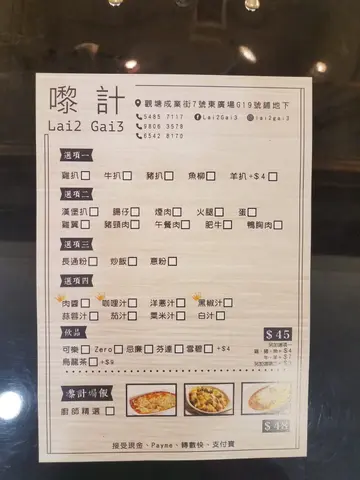 嚟計
Lai2 Gai3
觀塘成業街7號東廣場G19號舖地下
5485 7117 Lai2Gai3 lai2gai3
9806 3578
6542 8170
選項一
雞扒 牛扒 豬扒 魚柳 羊扒+$4
選項二
漢堡扒 腸仔 煙肉 火腿 蛋
雞翼 豬頸肉 午餐肉 肥牛 鴨胸肉
選項三
長通粉 炒飯 意粉
選項四
肉醬 咖喱汁 洋蔥汁 黑椒汁
蒜蓉汁 茄汁 粟米汁 白汁
飲品
可樂 Zero 忌廉 芬達 雪碧 +$4
烏龍茶 +$6
$45
嚟計焗飯
廚師精選
$48
接受現金、Payme、轉數快、支付寶